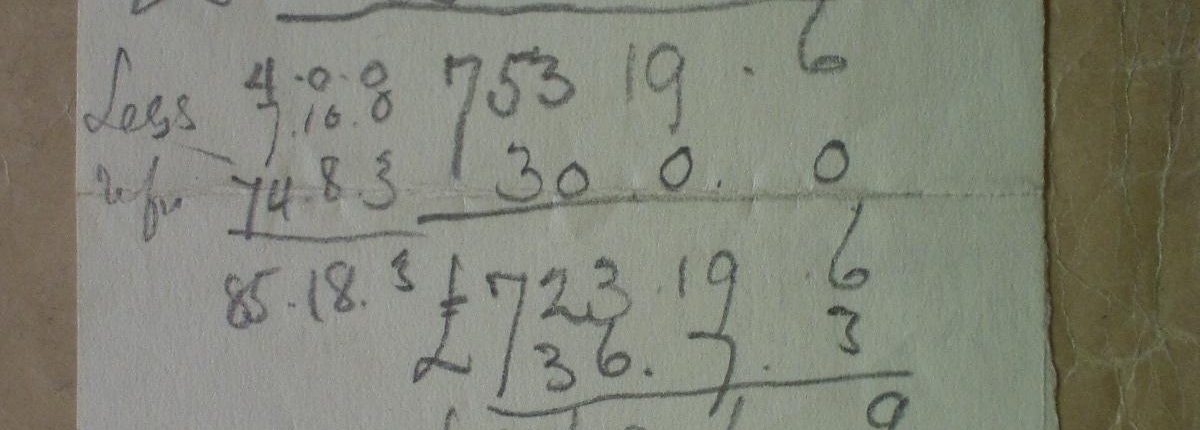 6
Less 4.0.0 753 19.
7.10.0
74.8.3 30.0.0
85.18.3 £723.19.6
£ 36.7.3
9